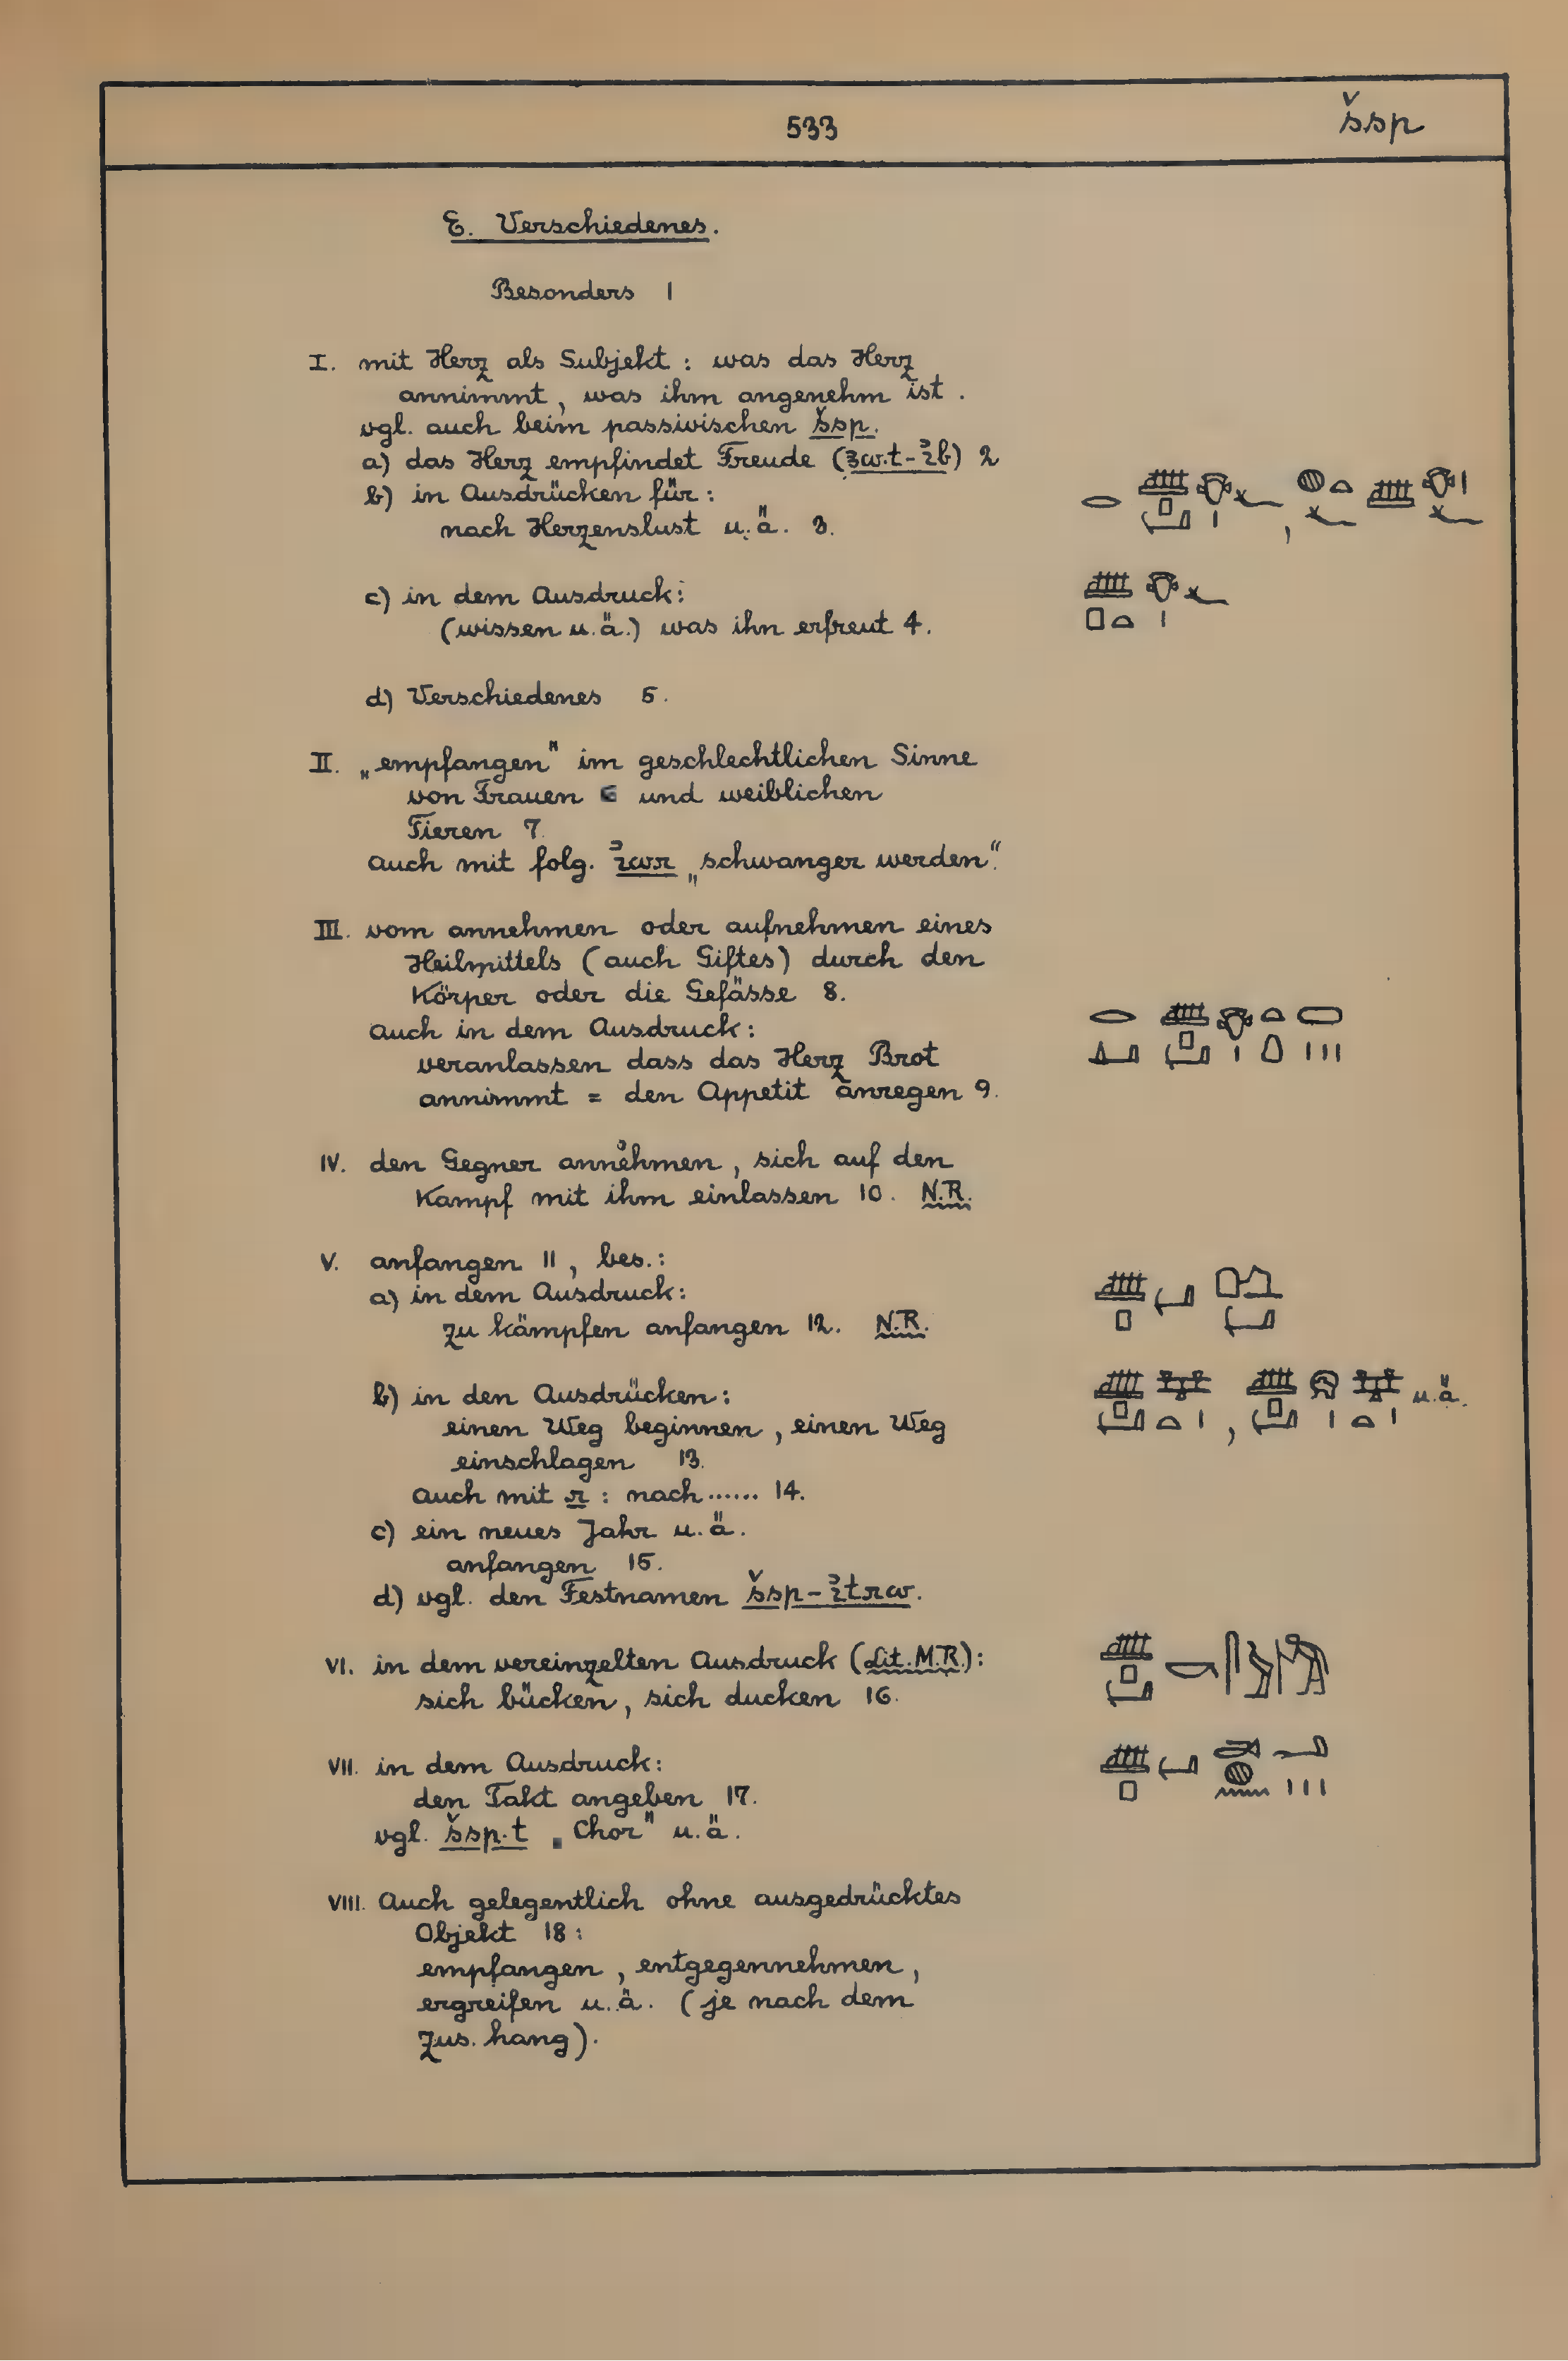 533
šsp
E. Verschiedenes.
Besonders 1
I. mit Herz als Subjekt : was das Herz
annimmt, was ihm angenehm ist.
vgl. auch beim passivischen šsp.
a) das Herz empfindet Freude (ꜣw.t-ἰb) 2
b) in Ausdrücken für :
nach Herzenslust u. ä. 3.
c) in dem Ausdruck:
(wissen u. ä.) was ihn erfreut 4.
d) Verschiedenes 5.
II. „empfangen" im geschlechtlichen Sinne
von Frauen 6 und weiblichen
Tieren 7.
auch mit folg. ἰwr „schwanger werden".
III. vom annehmen oder aufnehmen eines
Heilmittels (auch Giftes) durch den
Körper oder die Gefässe 8.
auch in dem Ausdruck:
veranlassen dass das Herz Brot
annimmt = den Appetit anregen 9.
IV. den Gegner annehmen, sich auf den
Kampf mit ihm einlassen 10. N.R.
V. anfangen 11, bes.:
a) in dem Ausdruck:
zu kämpfen anfangen 12. N.R.
b) in den Ausdrücken:
einen Weg beginnen, einen Weg u. ä.
einschlagen 13.
auch mit r : nach ...... 14.
c) ein neues Jahr u. ä.
anfangen 15.
d) vgl. den Festnamen šsp-ἰtrw.
VI. in dem vereinzelten Ausdruck (Lit. M.R.):
sich bücken, sich ducken 16.
VII. in dem Ausdruck:
den Takt angeben 17.
vgl. šsp.t „Chor" u. ä.
VIII. Auch gelegentlich ohne ausgedrücktes
Objekt 18:
empfangen, entgegennehmen,
ergreifen u. ä. (je nach dem
Zus. hang).